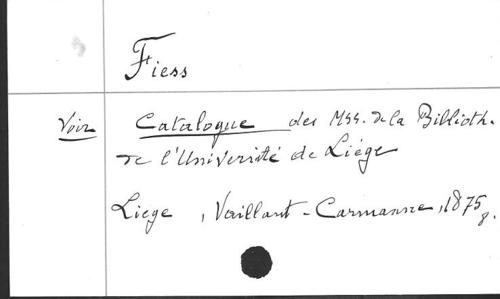 Fiess
Voir Catalogue des Mss. de la Biblioth.
de l'Université de Liége
Liege, Vaillant-Carmanne, 1875
8.